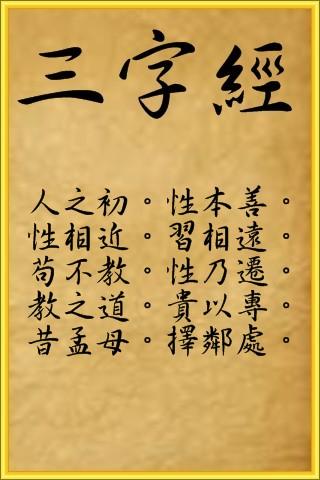 三字經
人之初。性本善。
性相近。習相遠。
苟不教。性乃遷。
教之道。貴以專。
昔孟母。擇鄰處。